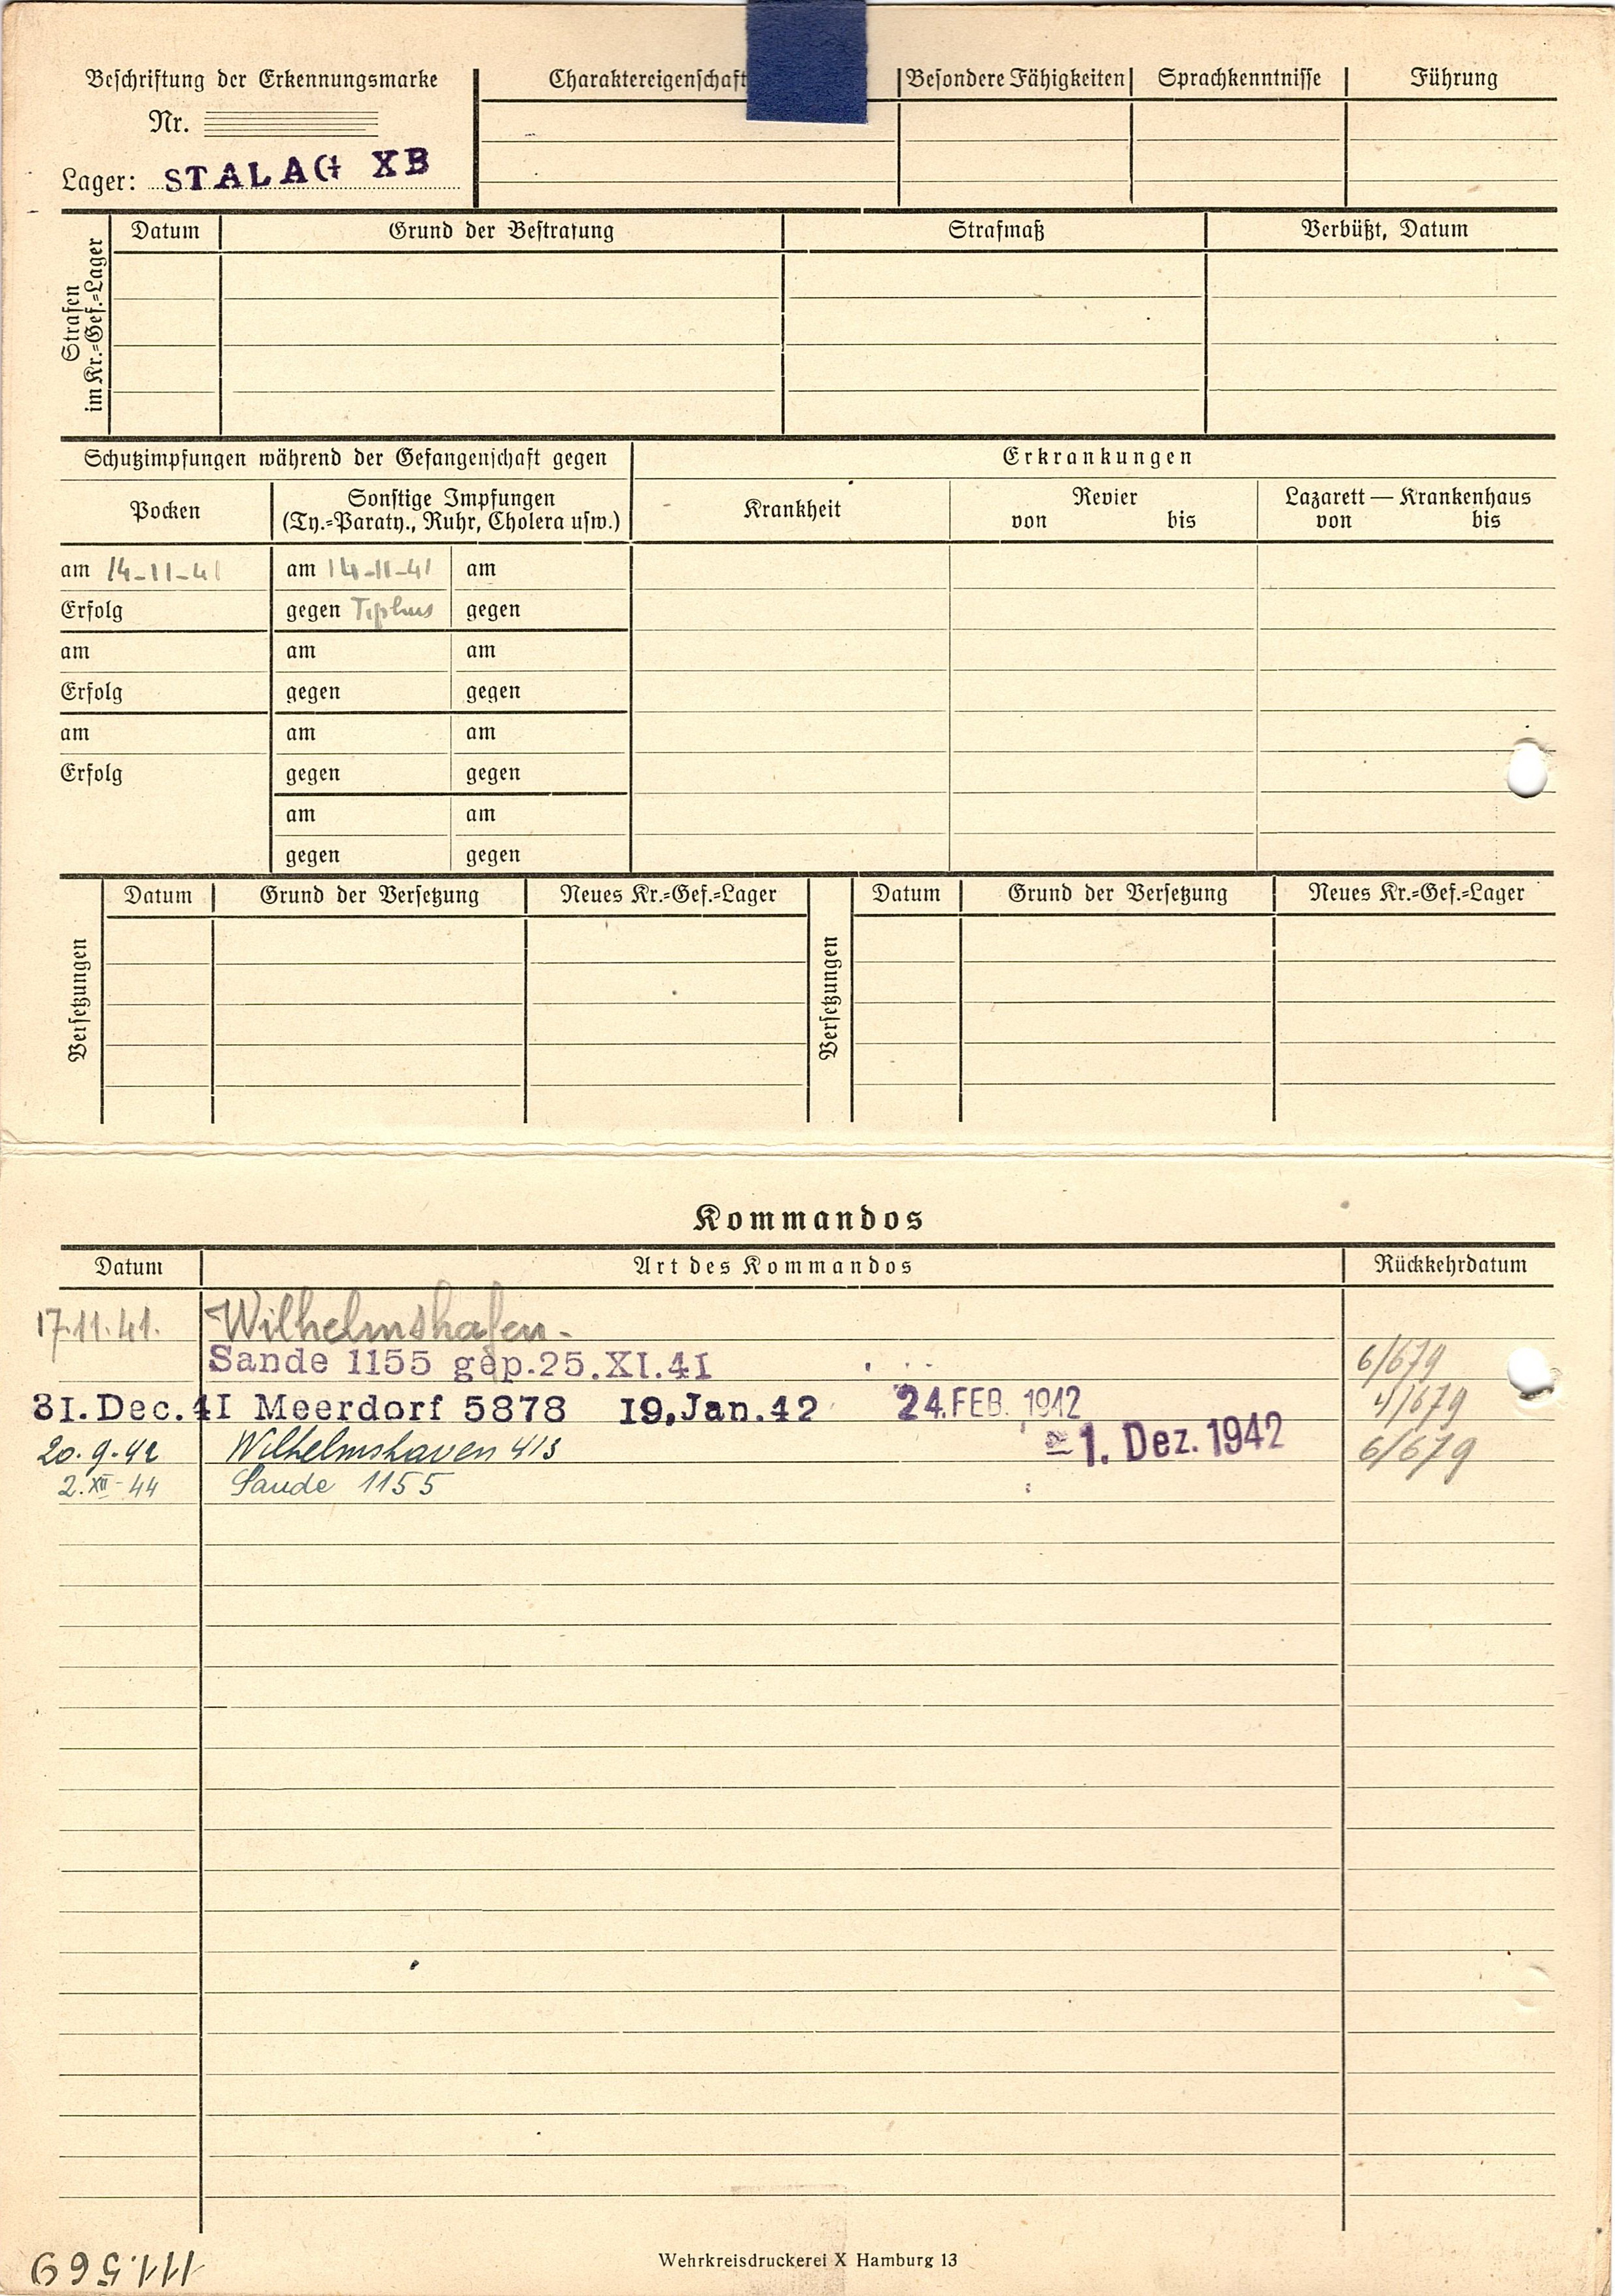 Beschriftung der Erkennungsmarke
Nr.
Lager: STALAG XB
Charaktereigenschaft
Besondere Fähigkeiten
Sprachkenntnisse
Führung
Strafen im Kr.=Gef.=Lager
Datum
Grund der Bestrafung
Strafmaß
Verbüßt, Datum
Schutzimpfungen während der Gefangenschaft gegen
Erkrankungen
Pocken
Sonstige Impfungen
(Ty.=Paraty., Ruhr, Cholera usw.)
Krankheit
Revier
von bis
Lazarett — Krankenhaus
von bis
am 14-11-41 am 14-11-41 am
Erfolg gegen Typhus gegen
am am am
Erfolg gegen gegen
am am am
Erfolg gegen gegen
am am
gegen gegen
Versetzungen
Datum Grund der Versetzung Neues Kr.=Gef.=Lager
Versetzungen
Datum Grund der Versetzung Neues Kr.=Gef.=Lager
Kommandos
Datum Art des Kommandos Rückkehrdatum
17.11.41. Wilhelmshafen-
Sande 1155 gep.25.XI.41 6/679
31.Dec.41 Meerdorf 5878 19.Jan.42 24.FEB.1942 4/679
20.9.42 Wilhelmshaven 413 1. Dez. 1942 6/679
2.XII-44 Sande 1155
Wehrkreisdruckerei X Hamburg 13
111569